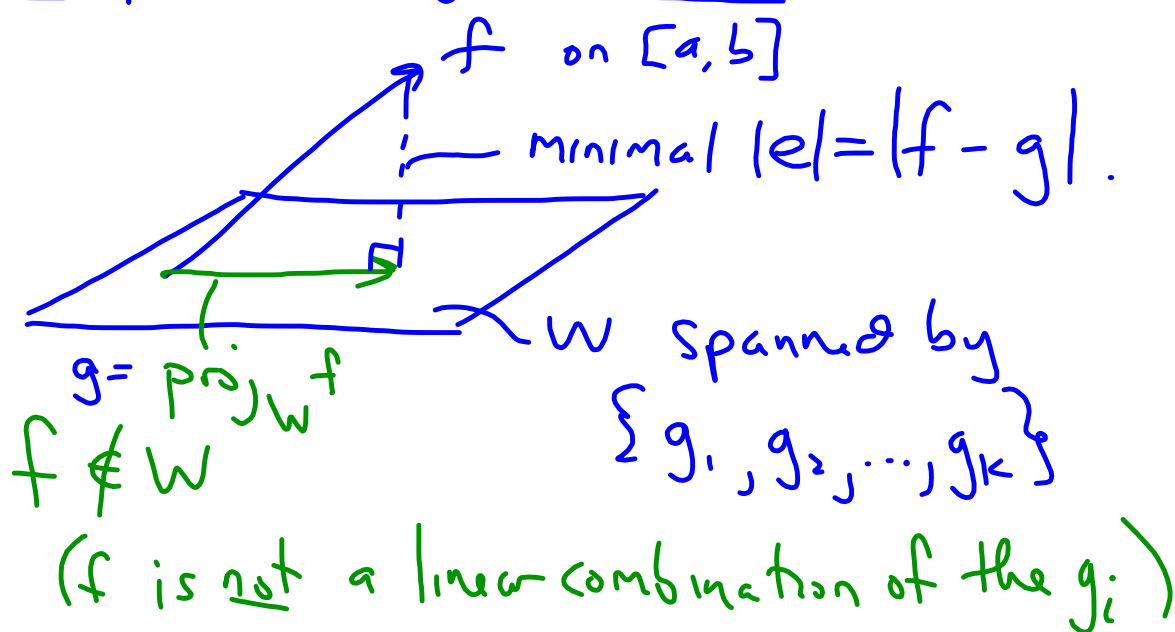 f on [a, b]
minimal |e| = |f - g|.
W spanned by
g = proj_W f
{g₁, g₂, ..., gₖ}
f ∉ W
(f is not a linear combination of the gᵢ)